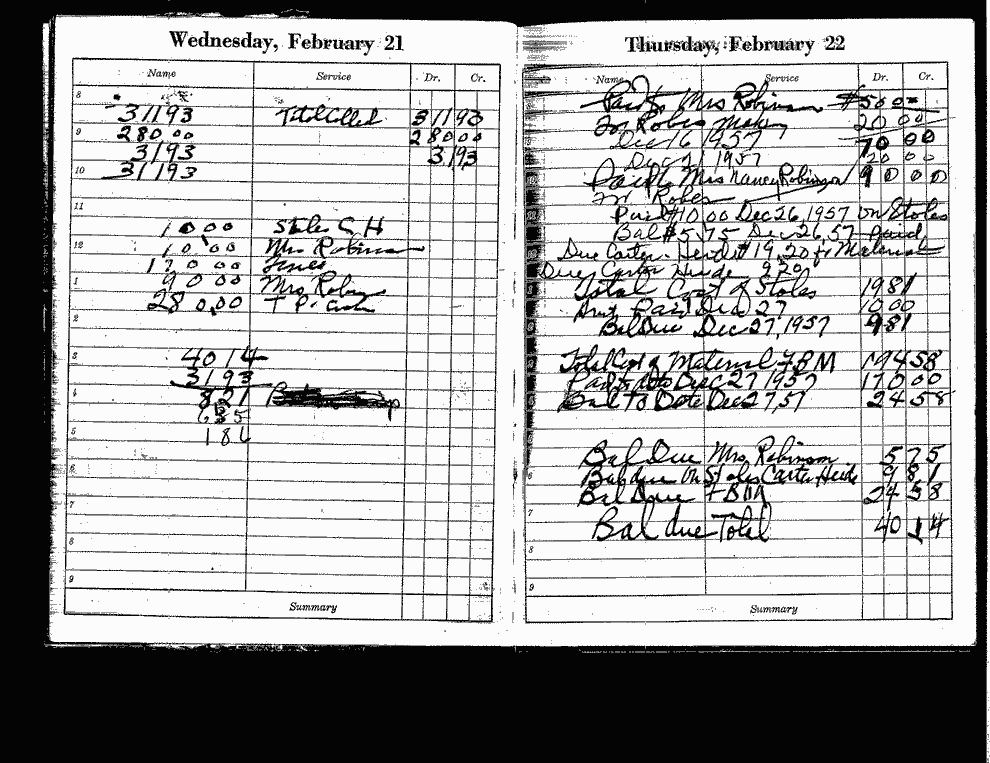 Wednesday, February 21
Name Service Dr. Cr.
8
31193 Total Colled 31193
9 280 00 280 00
3193 3193
10 31193
11
10 00 Stoles C H
12 10 00 Mrs Robinson
170 00 Jones
1 90 00 Mrs Robin
280.00 T P. Cash
2
3 4014
3193
4 821
635
5 184
6
7
8
9
Summary
Thursday, February 22
Name Service Dr. Cr.
Paid to Mrs Robinson $50 00
For Robes Making 20 00
Dec 16 1957 70 00
Dec 21 1957 20 00
Paid to Mrs Nancy Robinson 90 00
For Robes
Paid $10.00 Dec 26, 1957 on Stoles
Bal $5.75 Dec 26, 57 Paid
Due Carter Heide $19.20 for Material
Due Carter Heide 9.20
Total Cost of Stoles 19 81
Amt Paid Dec 27 10 00
Bal Due Dec 27, 1957 9 81
Total Cost of Material FBM 194 58
Paid to date Dec 27 1957 170 00
Bal To Date Dec 27, 57 24 58
Bal Due Mrs Robinson 5 75
6 Bal due on Stoles Carter Heide 9 81
Bal Due FBM 24 58
7 Bal due Total 40 14
8
9
Summary